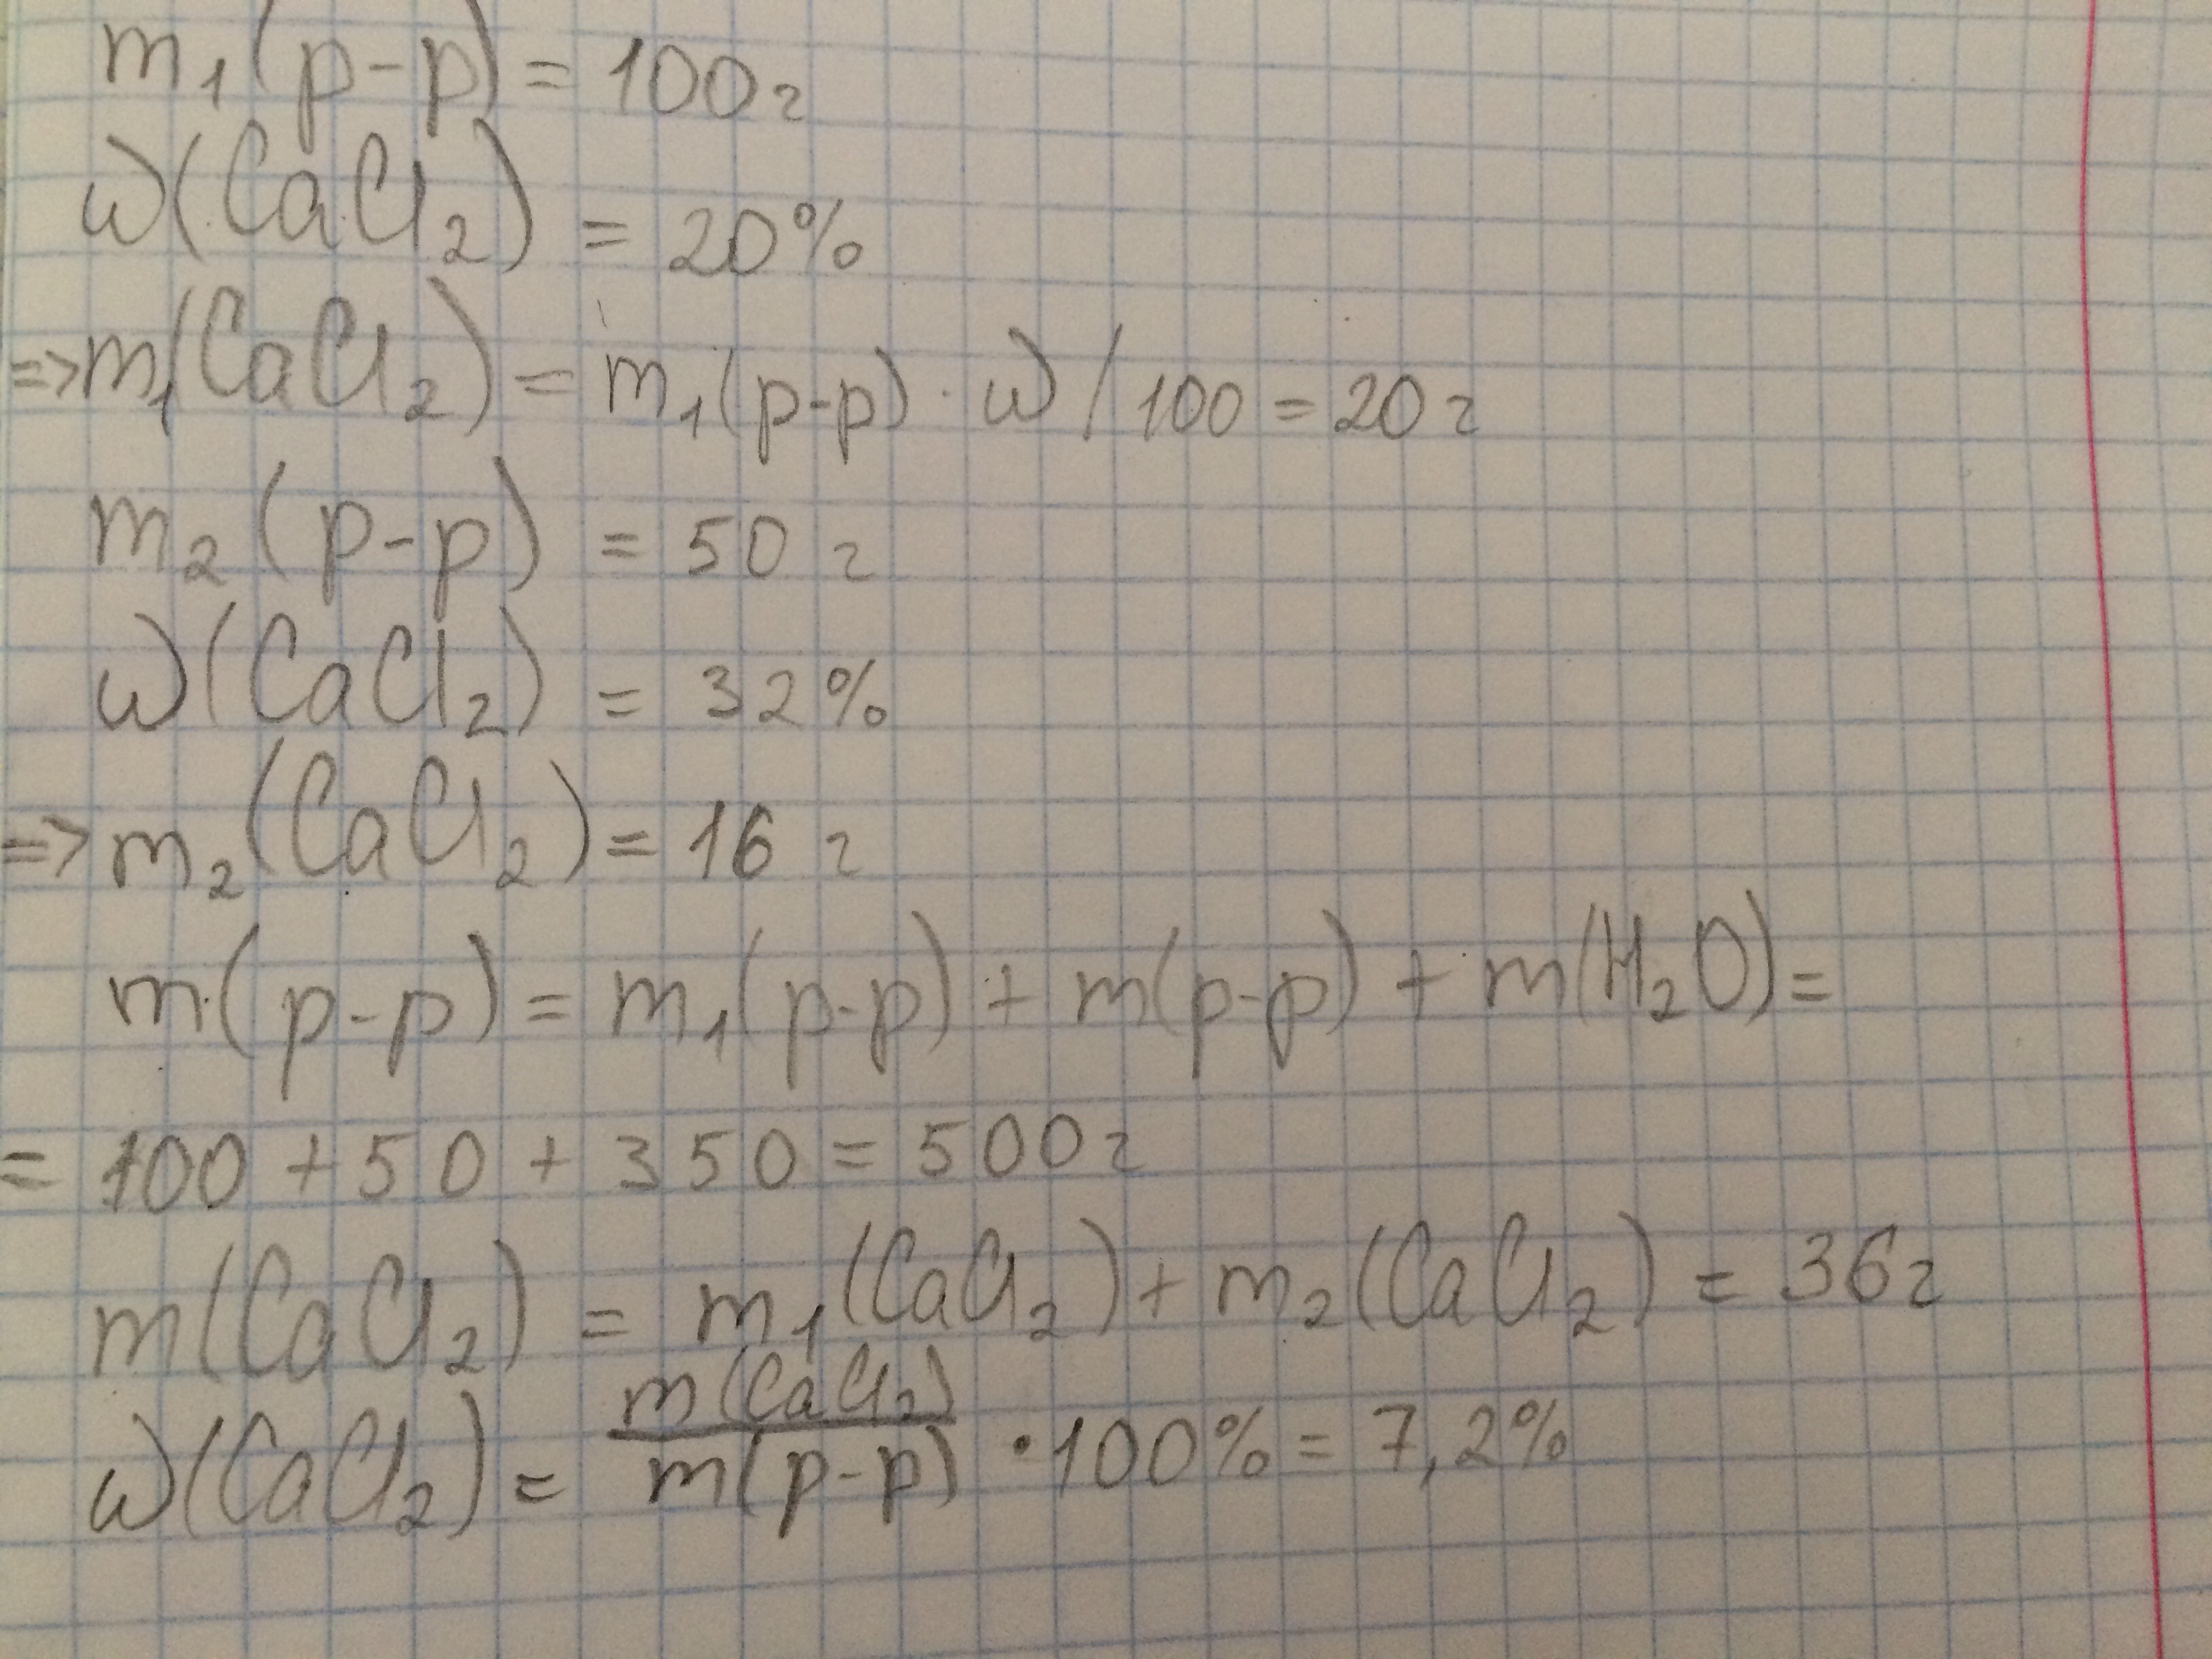 m₁(р-р) = 100г
ω(CaCl₂) = 20%
=> m₁(CaCl₂) = m₁(р-р) · ω / 100 = 20 г
m₂(р-р) = 50 г
ω(CaCl₂) = 32%
=> m₂(CaCl₂) = 16 г
m(р-р) = m₁(р-р) + m(р-р) + m(H₂O) =
= 100 + 50 + 350 = 500г
m(CaCl₂) = m₁(CaCl₂) + m₂(CaCl₂) = 36г
ω(CaCl₂) = m(CaCl₂) / m(р-р) · 100% = 7,2%